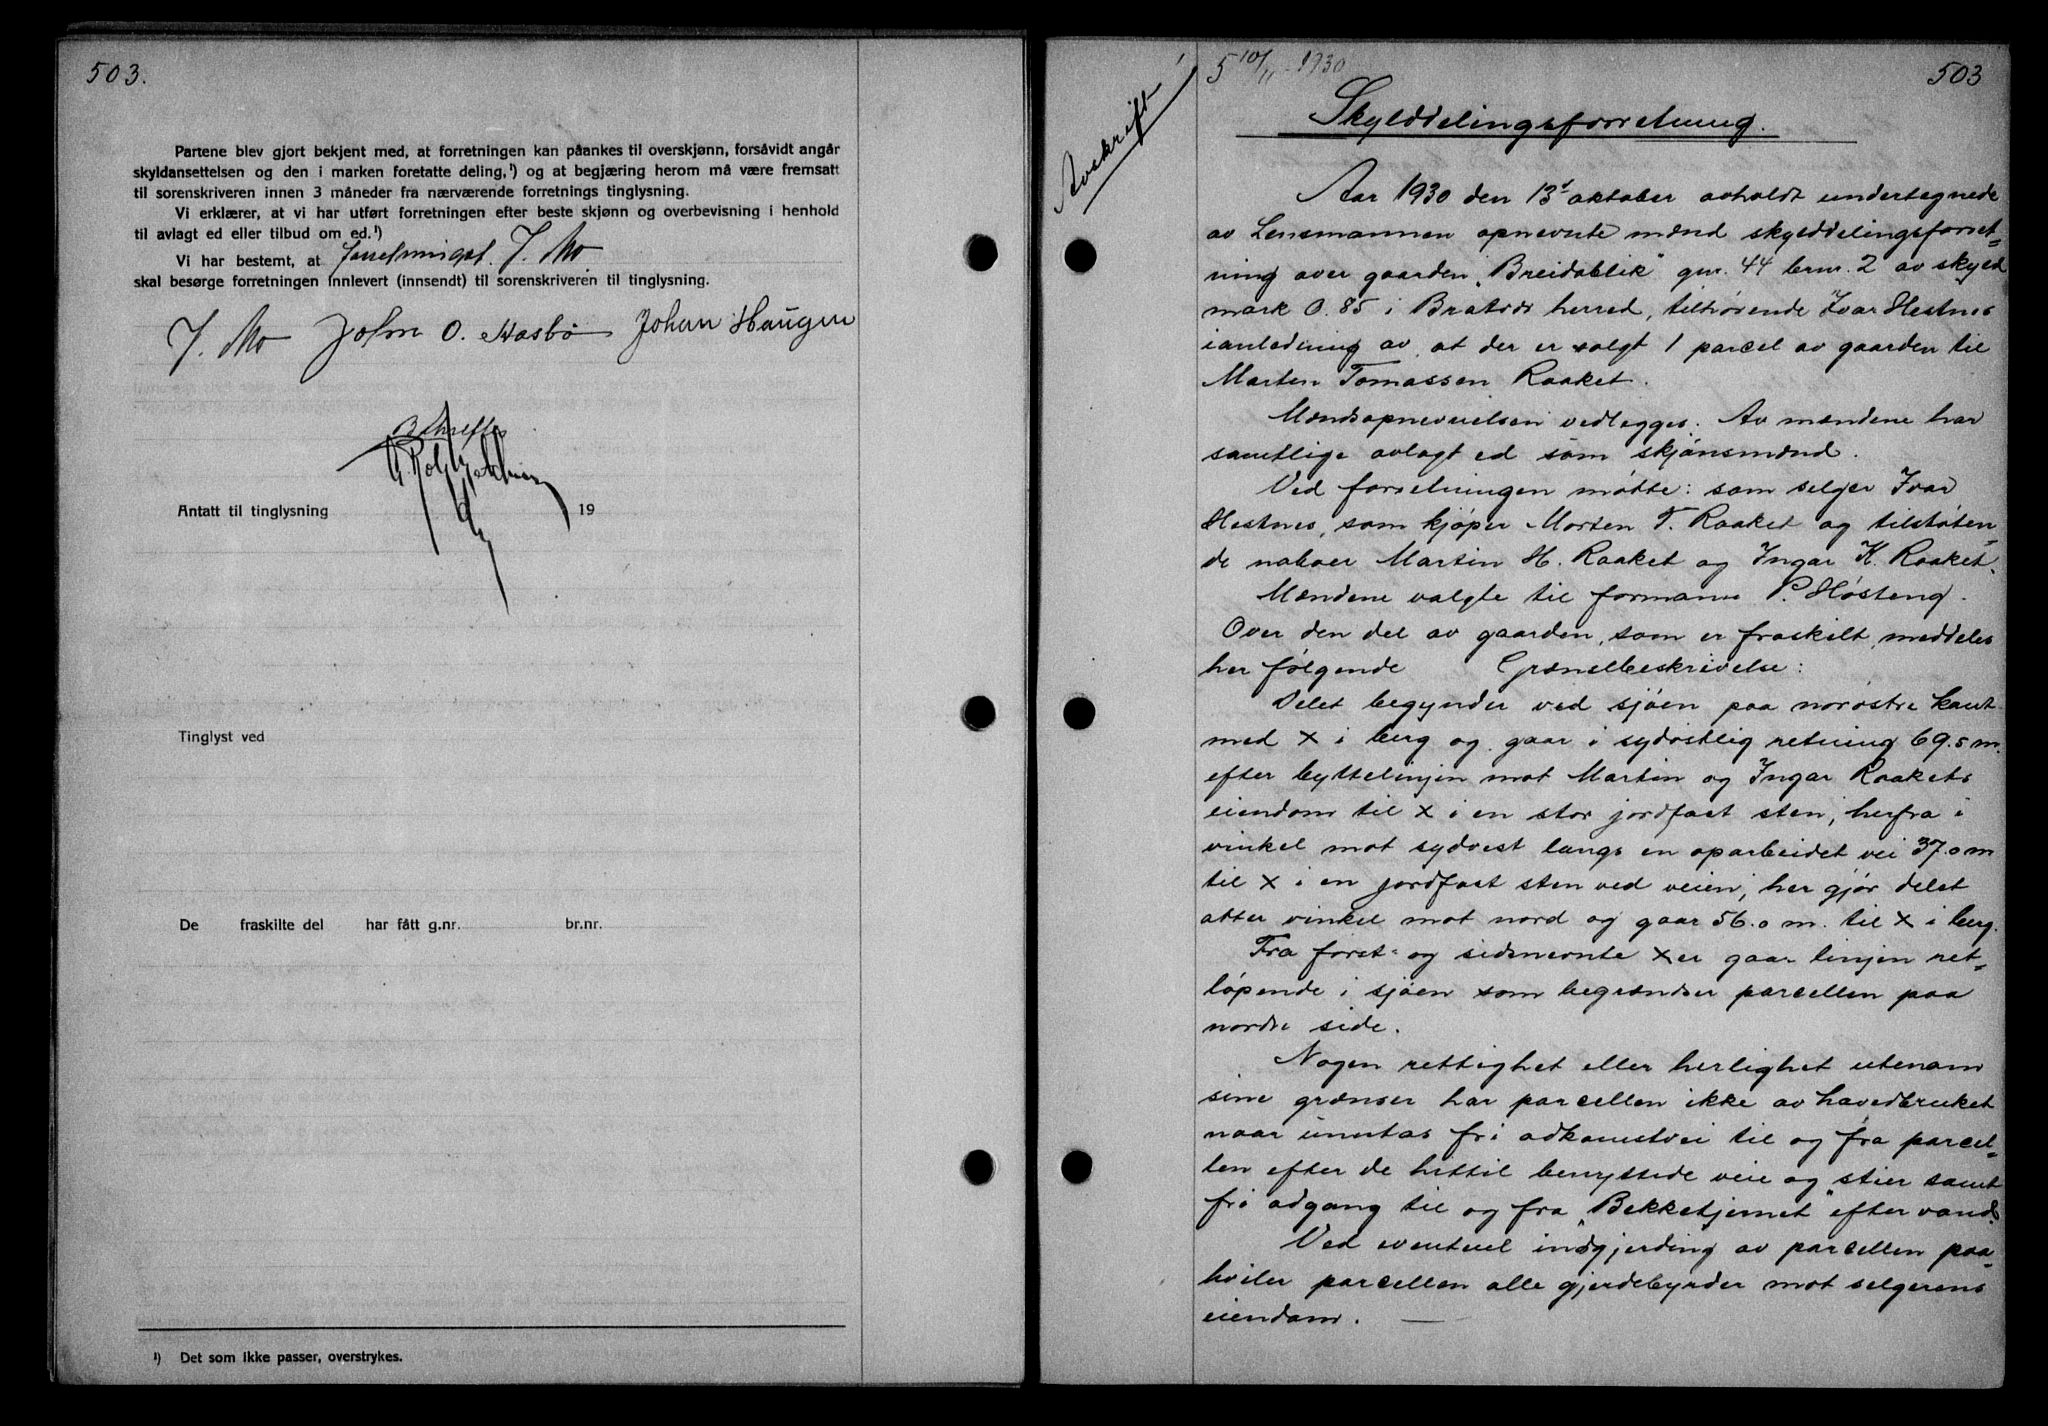 503.
Partene blev gjort bekjent med, at forretningen kan påankes til overskjønn, forsåvidt angår
skyldansettelsen og den i marken foretatte deling,¹) og at begjæring herom må være fremsatt
til sorenskriveren innen 3 måneder fra nærværende forretnings tinglysning.
Vi erklærer, at vi har utført forretningen efter beste skjønn og overbevisning i henhold
til avlagt ed eller tilbud om ed.¹)
Vi har bestemt, at J. Mo
skal besørge forretningen innlevert (innsendt) til sorenskriveren til tinglysning.
J. Mo John O. Aasbø Johan Haugen
Antatt til tinglysning 19
Tinglyst ved
De fraskilte del har fått g.nr. br.nr.
¹) Det som ikke passer, overstrykes.
Avskrift
5 10/11 1930
503
Skylddelingsforretning.
Aar 1930 den 13' oktober avholdt undertegnede
av Lensmannen opnevnte mænd skylddelingsforret-
ning over gaarden "Breidablik" gnr. 44 brnr. 2 av skyld
mark 0.85 i Bratvær herred, tilhørende Ivar Hestnes
ianledning av, at der er solgt 1 parcel av gaarden til
Morten Tomassen Raaket.
Mændsopnevnelsen vedlegges. Av mændene har
samtlige avlagt ed som skjønsmænd.
Ved forretningen møtte: som selger Ivar
Hestnes, som kjøper Morten T. Raaket og tilstøten-
de naboer Martin H. Raaket og Ingar K. Raaket.
Mændene valgte til formann P. Høsteng.
Over den del av gaarden, som er fraskilt, meddeles
her følgende Grænsebeskrivelse:
Delet begynder ved sjøen paa nordøstre kant
med X i berg og gaar i sydøstlig retning 69.5 m.
efter byttelinjen mot Martin og Ingar Raakets
eiendom til X i en stor jordfast sten, herfra i
vinkel mot sydvest langs en oparbeidet vei 37.0 m
til X i en jordfast sten ved veien, her gjør delet
atter vinkel mot nord og gaar 56.0 m. til X i berg.
Fra først- og sidstnevnte X er gaar linjen ret-
løpende i sjøen som begrændser parcellen paa
nordre side.
Nogen rettighet eller herlighet utenom
sine grænser har parcellen ikke av hovedbruket
naar unntas fri adkomstvei til og fra parcel-
len efter de hittil benyttede veie og stier samt
fri adgang til og fra "Bekketjernet" efter vand.
Ved eventuel indgjerding av parcellen paa-
hviler parcellen alle gjerdebyrder mot selgerens
eiendom.